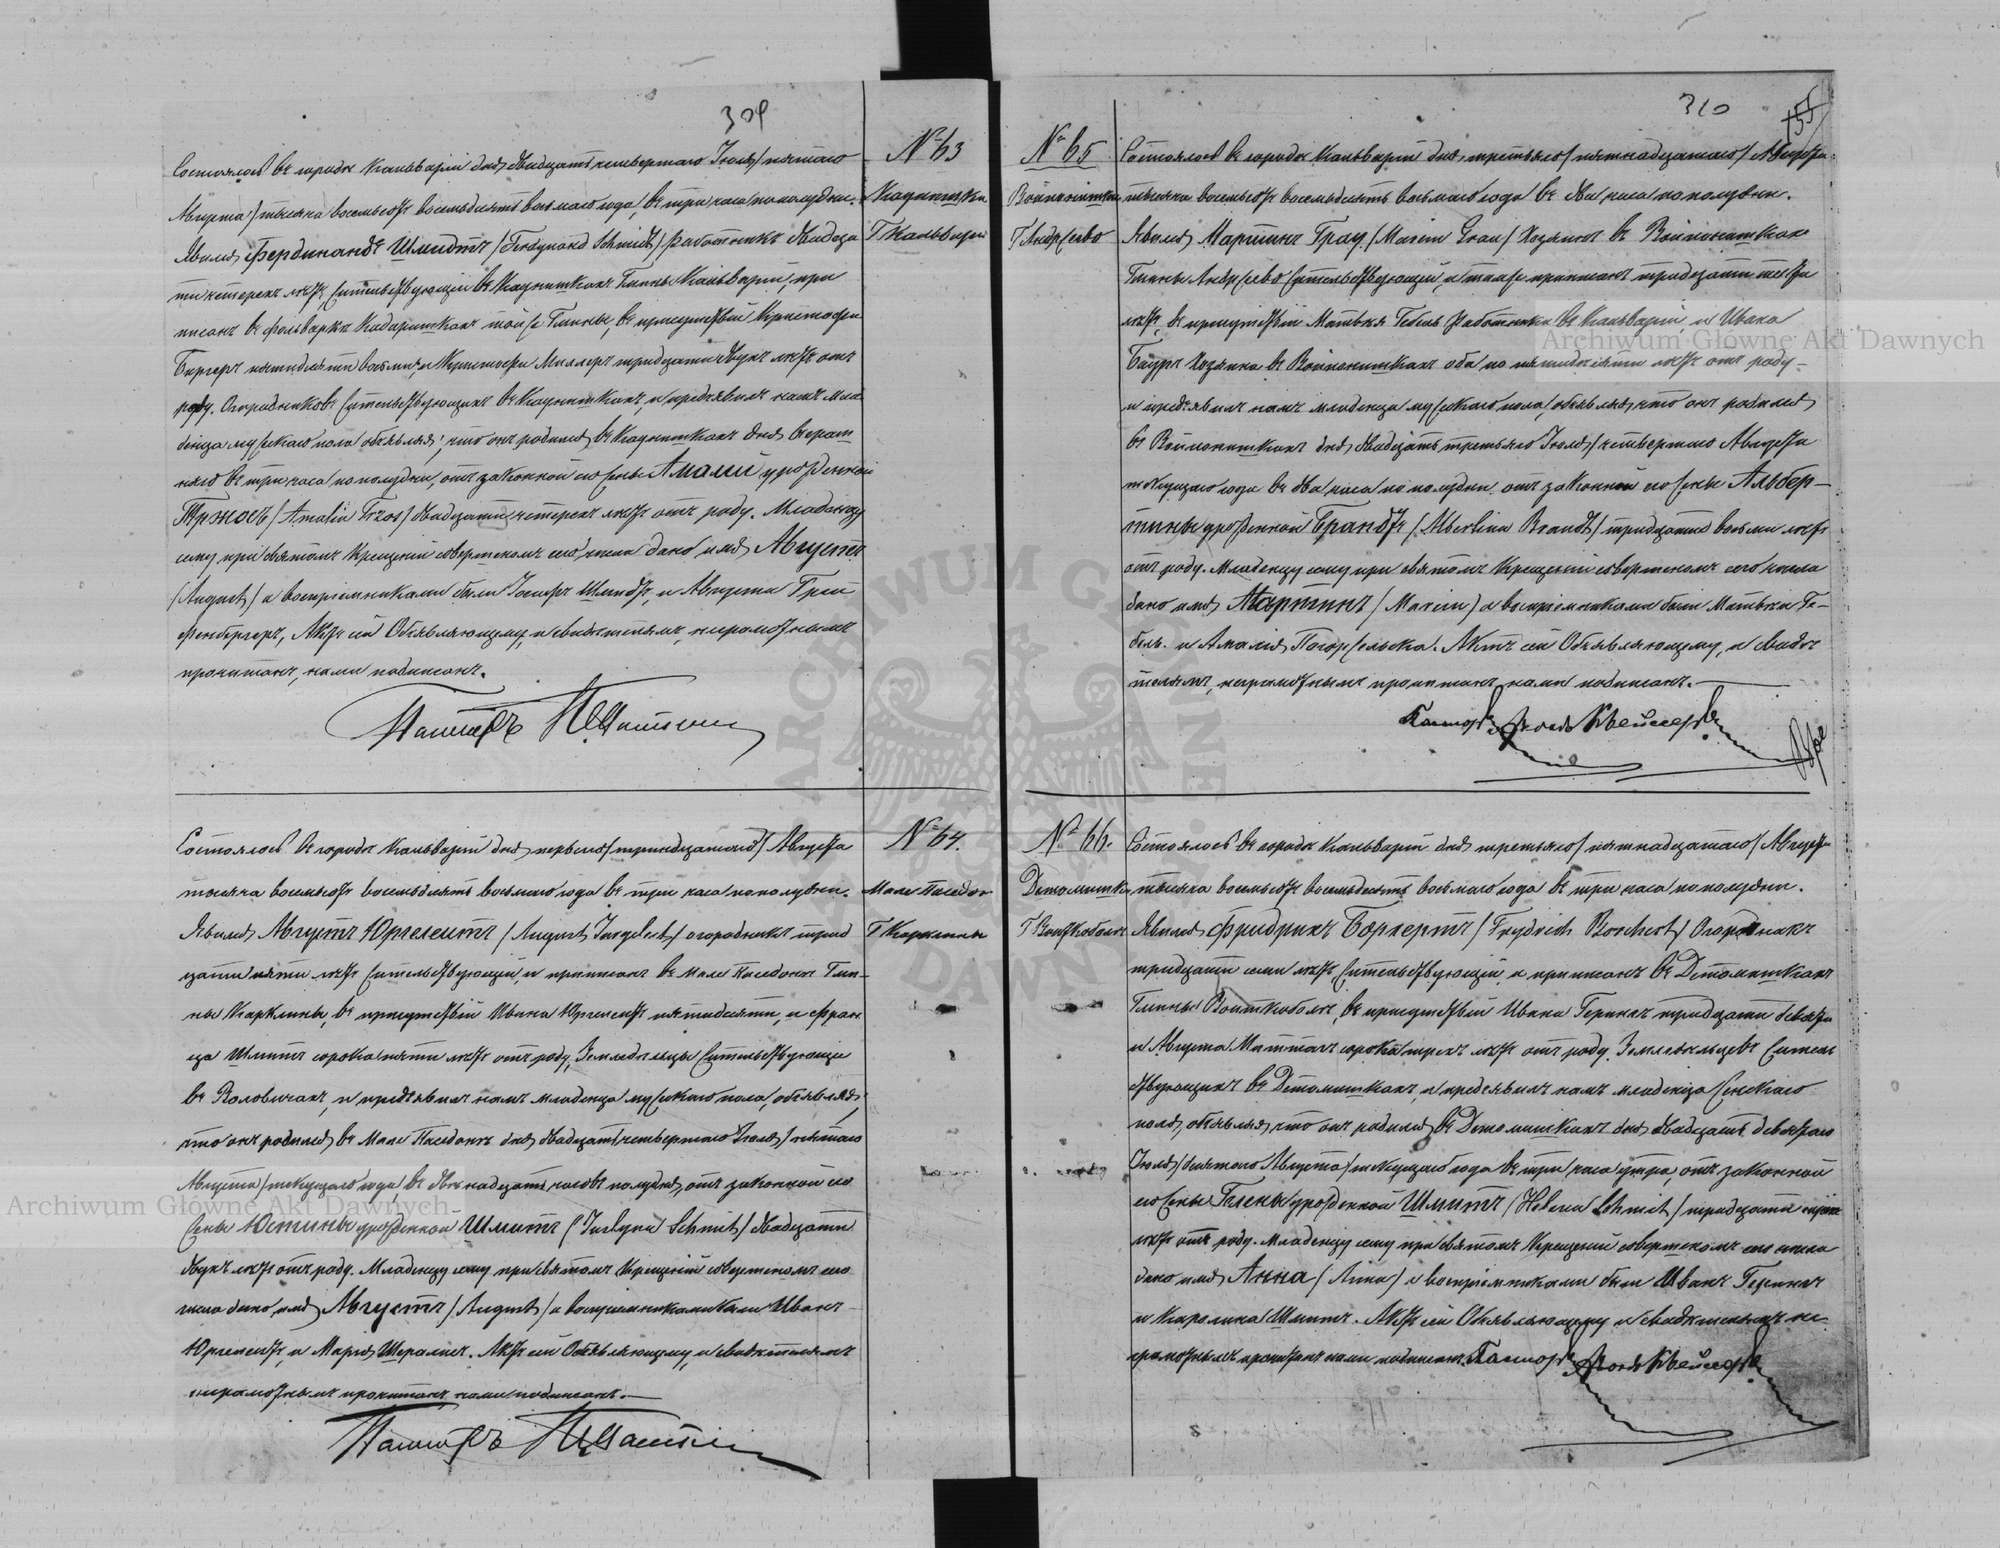 309
№ 63
Кадишки
Г. Кальварія
Состоялось въ городѣ Кальваріи дня двадцать четвертаго Іюля /пятаго
Августа/ тысяча восемьсотъ восемьдесятъ восьмаго года, въ три часа по полудни.
Явился Фердинандъ Шмидтъ /Ferdynand Schmidt/ работникъ двадца
ти четерехъ лѣтъ, жительствующій въ Гмины Кальварія, при
писанъ въ фольваркѣ той же Гмины, въ присутствіи Христофа
Бергеръ пятидесяти восьми, и Христофа Миллеръ тридцати двухъ лѣтъ отъ
роду. Огородниковъ жительствующихъ въ и предъявилъ намъ мла
денца мужескаго пола объявляя, что онъ родился въ дня вчераш
няго въ три часа по полудни, отъ законной его жены Амаліи урожденной
Тржосъ /Amalia Trzos/ двадцати четерехъ лѣтъ отъ роду. Младенцу
сему при святомъ Крещеніи совершеномъ сего числа дано имя Августъ
/August/ а воспріемниками были Іосифъ Шмидтъ, и Августа Грей
фенбергеръ, Актъ сей Объявляющему, и свидѣтелямъ, неграмотнымъ
прочитанъ, нами подписанъ.
Пасторъ
№ 64.
Мале Паседон
Г. Карклины
Состоялось въ городѣ Кальваріи дня перваго /тринадцатаго/ Августа
тысяча восемьсотъ восемьдесятъ восьмаго года въ три часа по полудни.
Явился Августъ Юргелейтъ /August Jurgeleit/ огородникъ трид
цати пяти лѣтъ жительствующій, и приписанъ въ Мале Паседонъ Гми-
ны Карклины, въ присутствіи Ивана Юргелейтъ пятидесяти, и Фран
ца Шмитъ сорока пяти лѣтъ отъ роду, Земледѣльцы жительствующіе
въ и предъявилъ намъ младенца мужескаго пола, объявляя,
что онъ родился въ Мале Паседонъ дня двадцать четвертаго Іюля /пятаго
Августа/ текущаго года, въ двѣнадцать часовъ полудня, отъ законной его
жены Юстины урожденной Шмитъ /Schmit/ двадцати
двухъ лѣтъ отъ роду. Младенцу сему при святомъ Крещеніи совершеномъ сего
числа дано имя Августъ /August/ а воспріемниками были Иванъ
Юргелейтъ, и Марія Актъ сей Объявляющему, и свидѣтелямъ
неграмотнымъ прочитанъ, нами подписанъ.
Пасторъ
310
155
№ 65
Войпонишки
Г. Андржеево
Состоялось въ городѣ Кальваріи дня третьяго /пятнадцатаго/ Августа
тысяча восемьсотъ восемьдесятъ восьмаго года въ два часа по полудни.
Явился Мартинъ Грау /Marcin Grau/ Хозяинъ въ Войпонишкахъ
Гмины Андржеево жительствующій, и тамже приписанъ тридцати шести
лѣтъ, въ присутствіи Матвѣя Гебель Работника въ Кальваріи и Ивана
Бауръ Хозяина въ Войпонишкахъ оба по пятидесяти лѣтъ отъ роду
и предъявилъ намъ младенца мужескаго пола, объявляя, что онъ родился
въ Войпонишкахъ дня двадцать третьяго Іюля /четвертаго Августа
текущаго года въ два часа по полудни отъ законной его жены Альбер-
тины урожденной Брандтъ /Albertina Brandt/ тридцати восьми лѣтъ
отъ роду. Младенцу сему при святомъ Крещеніи совершеномъ сего числа
дано имя Мартинъ /Marcin/ а воспріемниками были Матвѣй Ге-
бель и Амалія Погоржельска. Актъ сей Объявляющему, и свидѣ
телямъ, неграмотнымъ прочитанъ, нами подписанъ.
Пасторъ
№ 66.
Детомишки
Г. Войткоболь
Состоялось въ городѣ Кальваріи дня третьяго /пятнадцатаго/ Августа
тысяча восемьсотъ восемьдесятъ восьмаго года въ три часа по полудни.
Явился Фридрихъ Борхертъ /Frydrich Borchert/ Огородникъ
тридцати семи лѣтъ, жительствующій, и приписанъ въ Детомишкахъ
Гмины Войткоболь, въ присутствіи Ивана тридцати девяти
и Августа сорока трехъ лѣтъ отъ роду, Земледѣльцевъ житель
ствующихъ въ Детомишкахъ, и предъявилъ намъ младенца женскаго
пола, объявляя, что онъ родился въ Детомишкахъ дня двадцать девятаго
Іюля /десятаго Августа/ текущаго года въ три часа утра, отъ законной
его жены Гелены урожденной Шмитъ /Helena Schmit/ тридцати
лѣтъ отъ роду. Младенцу сему при святомъ Крещеніи совершеномъ сего числа
дано имя Анна /Anna/ а воспріемниками были Иванъ
и Каролина Шмитъ. Актъ сей Объявляющему и свидѣтелямъ не
грамотнымъ прочитанъ нами подписанъ. Пасторъ
ARCHIWUM GŁÓWNE AKT DAWNYCH
Archiwum Główne Akt Dawnych
Archiwum Główne Akt Dawnych